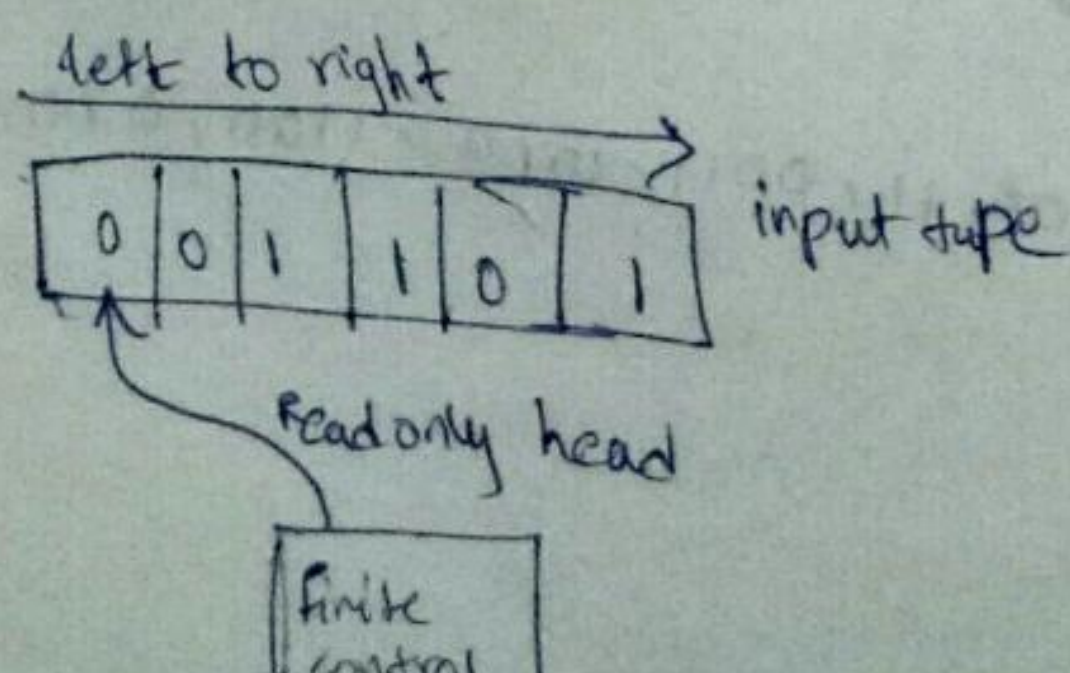 left to right
0 0 1 1 0 1
input tupe
Read only head
finite
control